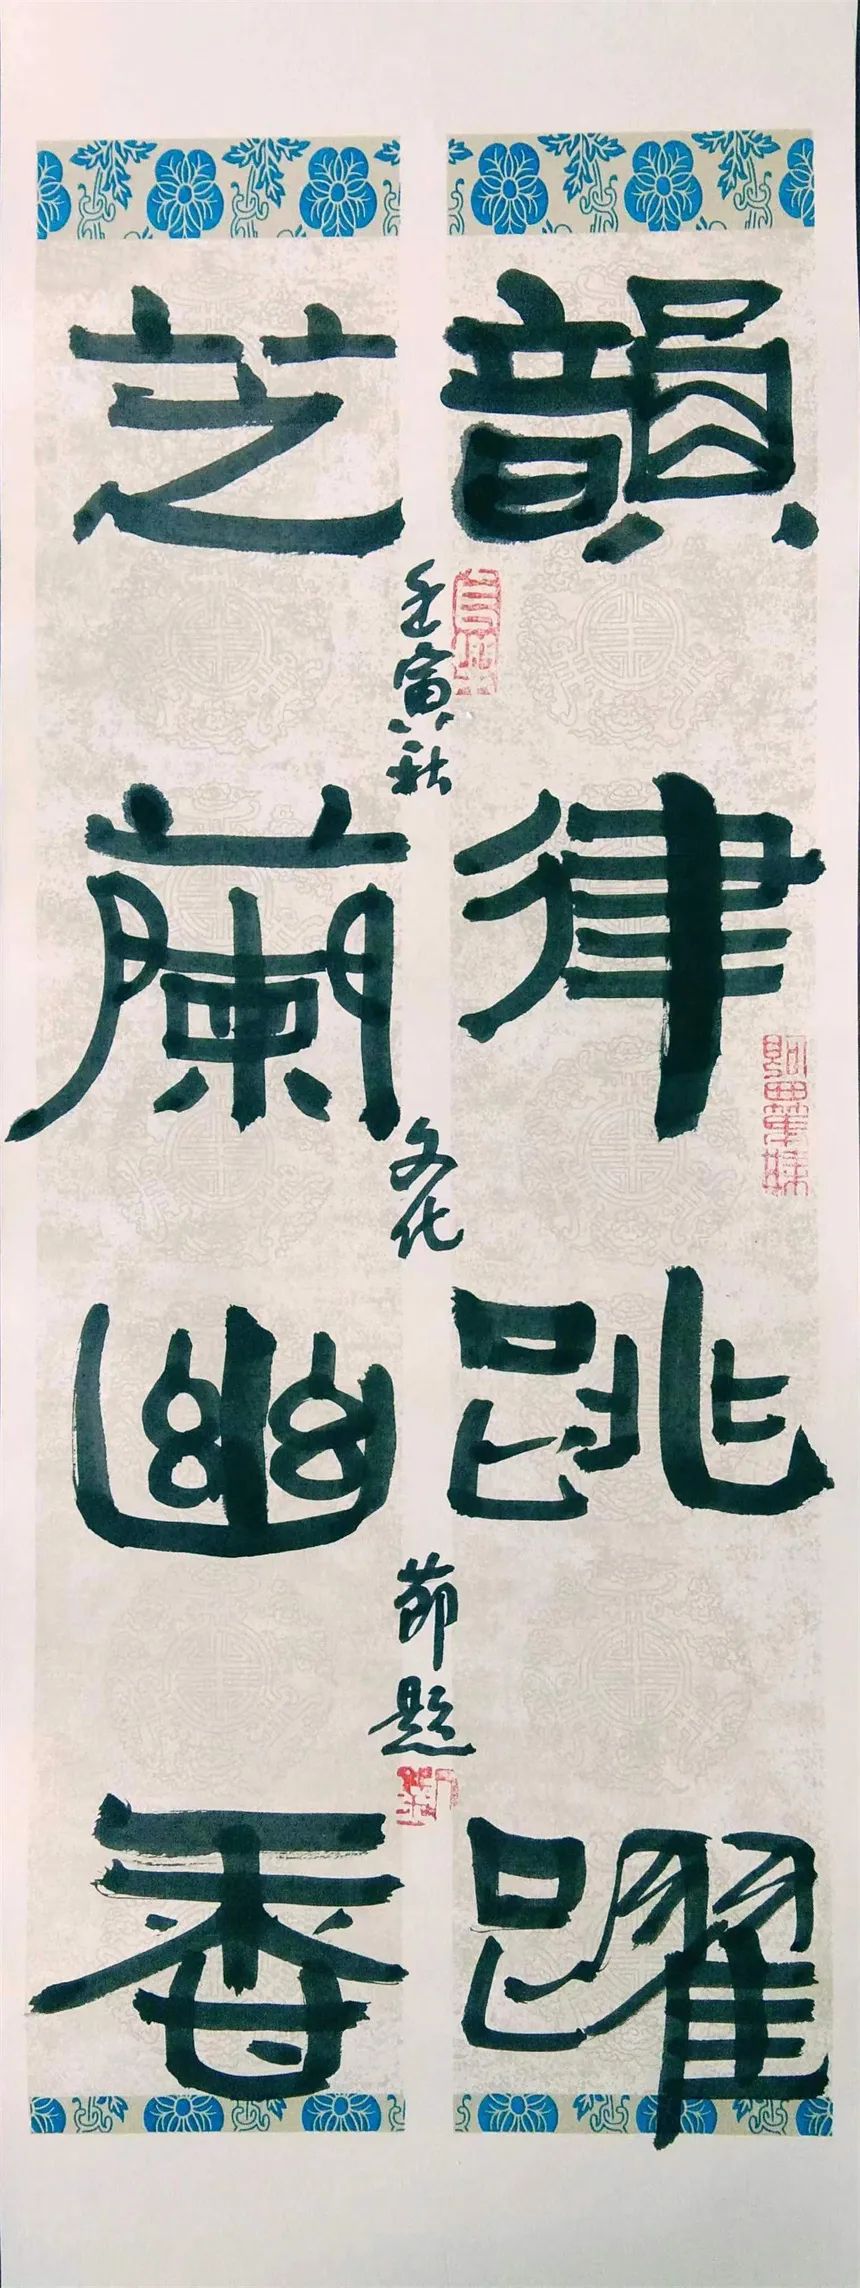 韻律跳躍
芝蘭幽香
壬寅秋
文化
節題